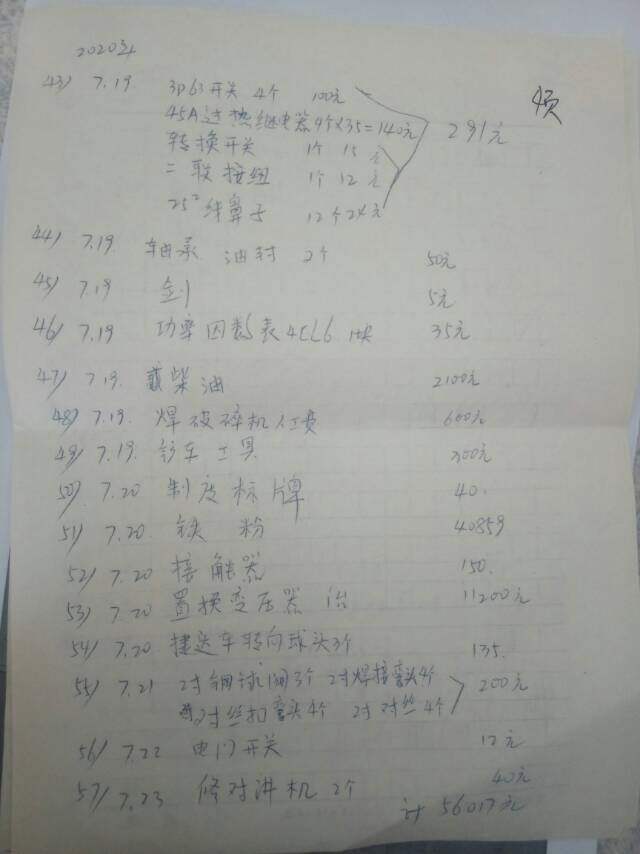 2020年
43) 7.19 3P63开关 4个 100元
45A过热继电器4个×35=140元 291元
转换开关 1个 15元
二联按钮 1个 12元
25²线鼻子 12个24元
44) 7.19 轴承 油封 2个 50元
45) 7.19 5元
46) 7.19 功率因数表4CL6 1块 35元
47) 7.19. 柴油 2100元
48) 7.19. 焊破碎机人工费 600元
49) 7.19. 车工具 300元
50) 7.20 制度标牌 40.
51) 7.20 铁粉 40859
52) 7.20 接触器 150.
53) 7.20 置换变压器 11200元
54) 7.20 车转向球头3个 135.
55) 7.21 2寸钢球阀3个 2寸焊接弯头4个 200元
2寸丝扣弯头4个 2寸对丝4个
56) 7.22 电门开关 12元
57) 7.23 修对讲机 2个 40元
计 56017元